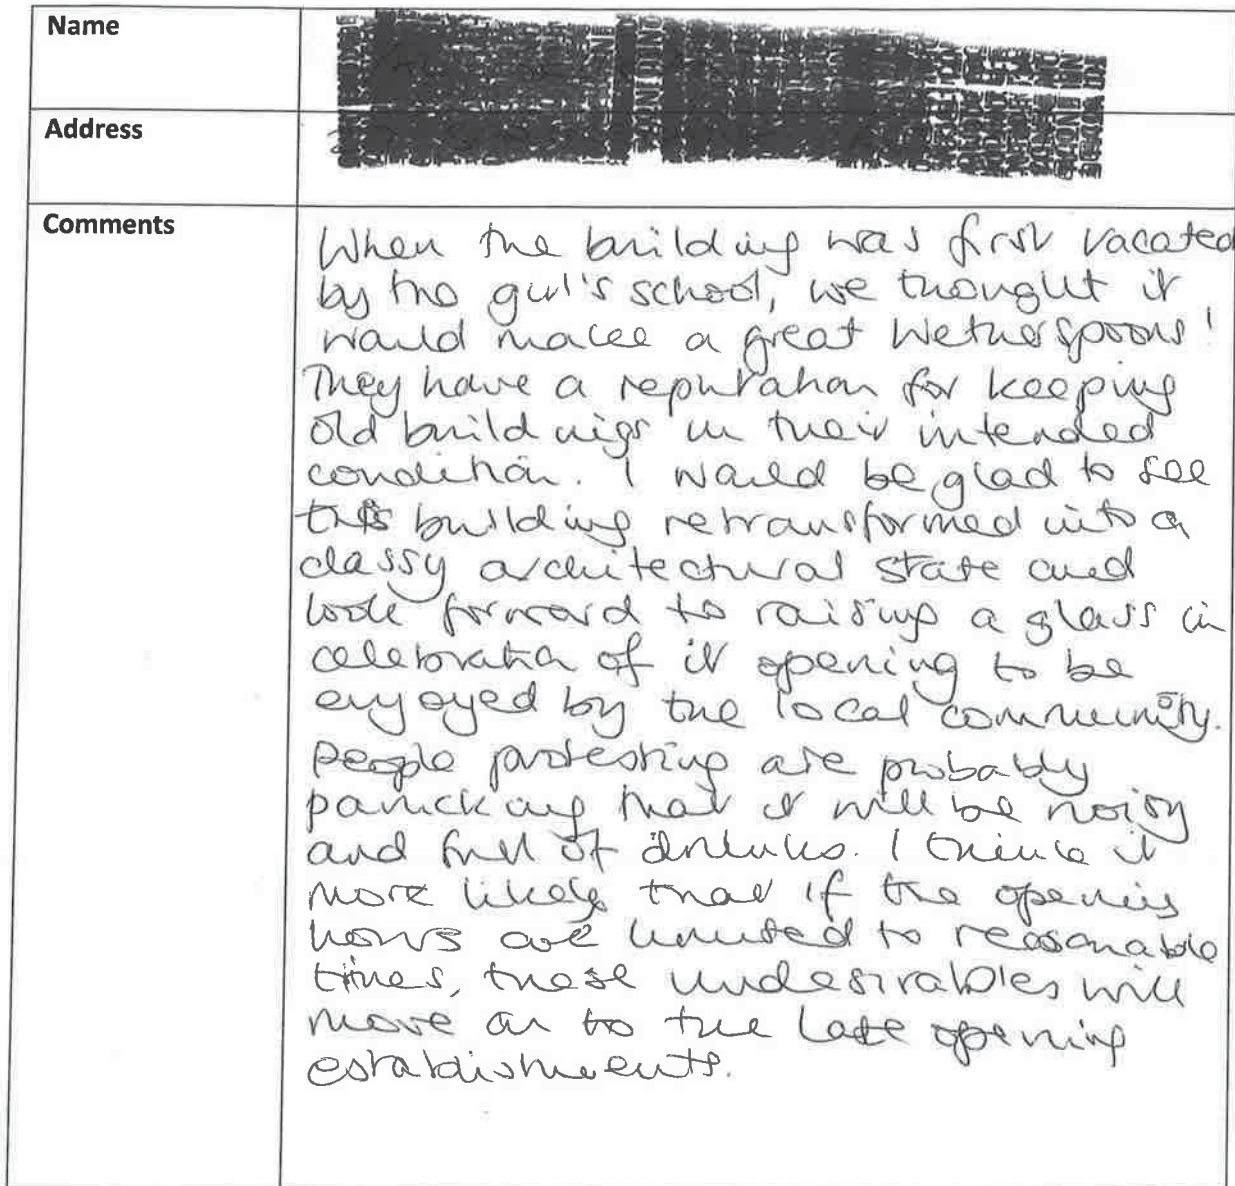 Name
Address
Comments
When the building was first vacated
by the girl's school, we thought it
would make a great Wetherspoons!
They have a reputation for keeping
old buildings in their intended
condition. I would be glad to see
this building retransformed into a
classy architectural state and
look forward to raising a glass in
celebration of it opening to be
enjoyed by the local community.
People protesting are probably
panicking that it will be noisy
and full of drunks. I think it
more likely that if the opening
hours are limited to reasonable
times, these undesirables will
move on to the late opening
establishments.